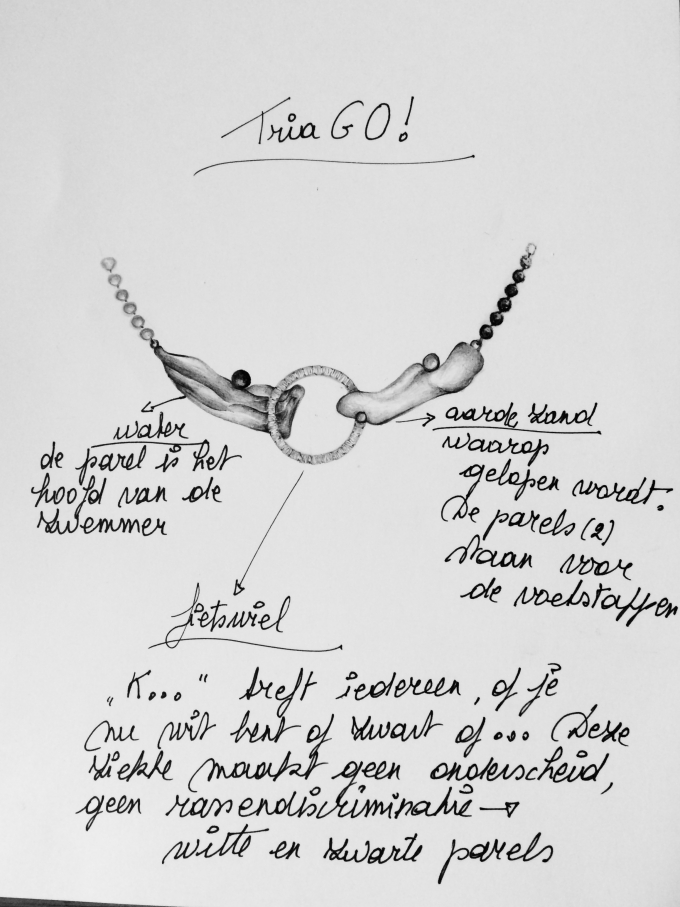 Tria GO!
water
de parel is het
hoofd van de
zwemmer
aarde zand
waarop
gelopen wordt.
De parels (2)
staan voor
de voetstappen
fietswiel
„K..." treft iedereen, of je
nu wit bent of zwart of... Deze
ziekte maakt geen onderscheid,
geen rassendiscriminatie →
witte en zwarte parels